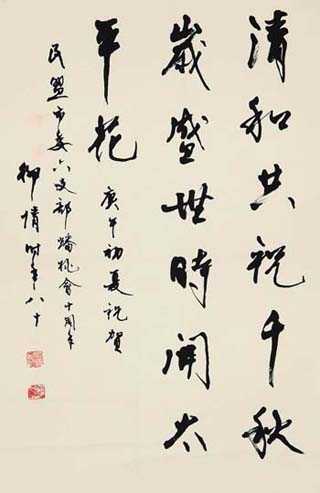 清和共祝千秋
歲盛世時開太
平花
庚午初夏祝賀
民盟市委六支部蟠桃會十周年
柳倩時年八十